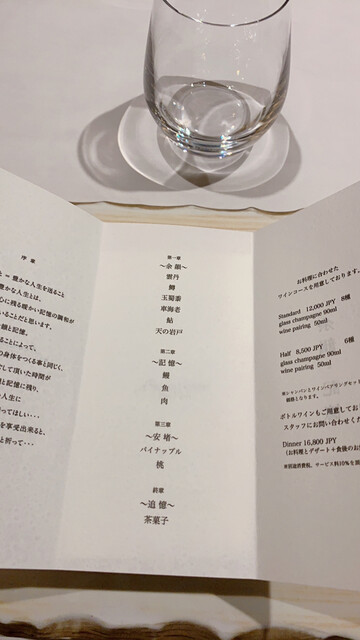 序章
と = 豊かな人生を送ること
豊かな人生とは、
心に残る細かい記憶の調和が
いることだと思います。
顔と記憶。
ることによって、
の身体をつくる事と同じく、
して頂いた時間が
と記憶に残り、
人生に
ってほしい・・・
を享受出来ると、
と祈って・・・
第一章
～余韻～
雲丹
鱒
玉蜀黍
車海老
鮎
天の岩戸
第二章
～記憶～
鰻
魚
肉
第三章
～安堵～
パイナップル
桃
終章
～追憶～
茶菓子
お料理に合わせた
ワインコースを用意しております。
Standard 12,000 JPY 8種
glass champagne 90ml
wine pairing 50ml
Half 8,500 JPY 6種
glass champagne 90ml
wine pairing 50ml
※シャンパンとワインペアリングセット
価格となります。
ボトルワインもご用意してお
スタッフにお問い合わせくだ
Dinner 16,800 JPY
(お料理とデザート+食後のお
※別途消費税、サービス料10%を頂